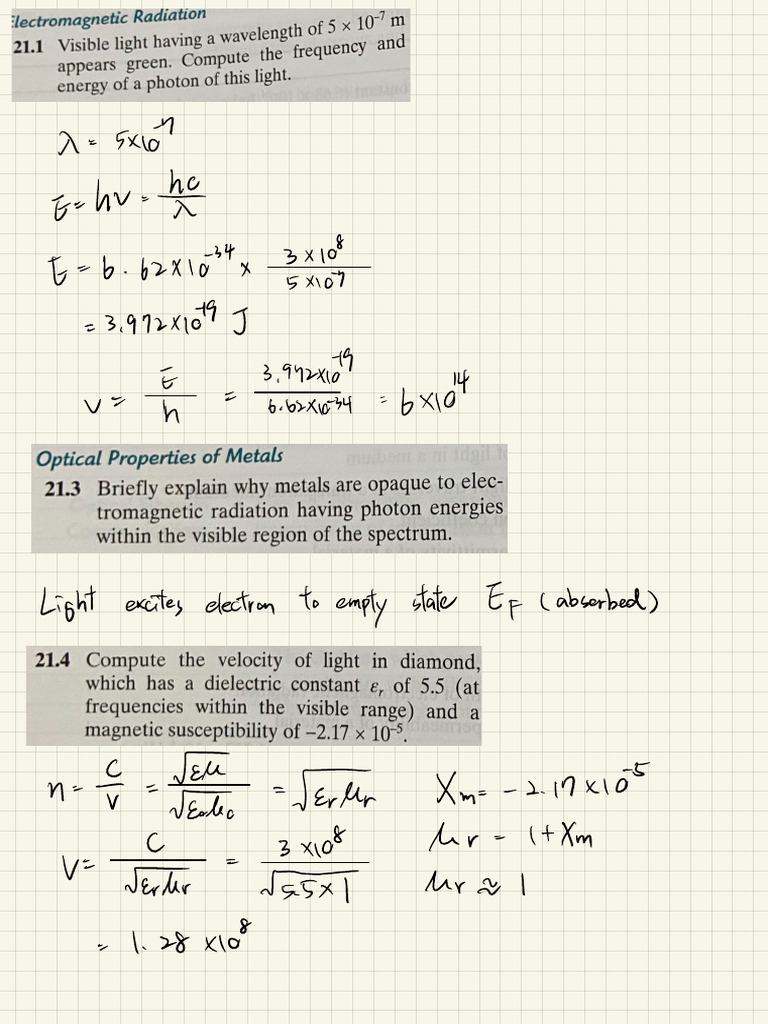 Electromagnetic Radiation
21.1 Visible light having a wavelength of 5 × 10⁻⁷ m
appears green. Compute the frequency and
energy of a photon of this light.
λ = 5×10⁻⁷
E = hν = hc/λ
E = 6.62×10⁻³⁴ × 3×10⁸/5×10⁻⁷
= 3.972×10⁻¹⁹ J
ν = E/h = 3.972×10⁻¹⁹/6.62×10⁻³⁴ = 6×10¹⁴
Optical Properties of Metals
21.3 Briefly explain why metals are opaque to elec-
tromagnetic radiation having photon energies
within the visible region of the spectrum.
Light excites electron to empty state E_F (absorbed)
21.4 Compute the velocity of light in diamond,
which has a dielectric constant εᵣ of 5.5 (at
frequencies within the visible range) and a
magnetic susceptibility of −2.17 × 10⁻⁵.
n = c/v = √εμ/√ε₀μ₀ = √εᵣμᵣ
Xm = −2.17×10⁻⁵
V = c/√εᵣμᵣ = 3×10⁸/√5.5×1
μr = 1+Xm
μr ≈ 1
= 1.28×10⁸